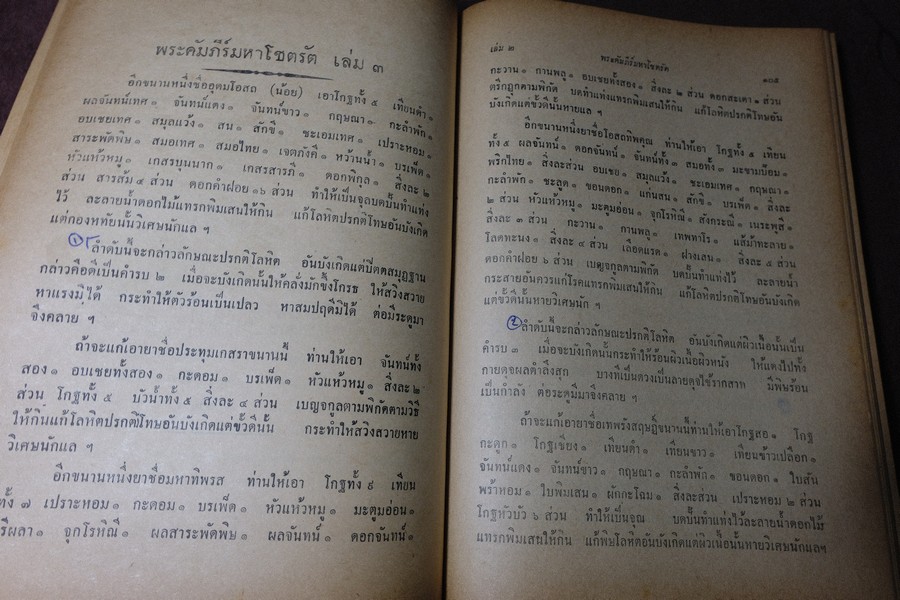 พระคัมภีร์มหาโชตรัต เล่ม ๓
อีกขนานหนึ่งชื่ออุดมโอสถ (น้อย) เอาโกฐทั้ง ๕ เทียนดำ ๑
ผลจันทน์เทศ ๑ จันทน์แดง ๑ จันทน์ขาว ๑ กฤษณา ๑ กะลำพัก ๑
อบเชยเทศ ๑ สมุลแว้ง ๑ สน ๑ สักขี ๑ ชะเอมเทศ ๑ เปราะหอม ๑
สาระพัดพิษ ๑ สมอเทศ ๑ สมอไทย ๑ เจตภังคี ๑ หว้านน้ำ ๑ บรเพ็ด ๑
หัวแห้วหมู ๑ เกสรบุนนาก ๑ เกสรสารภี ๑ ดอกพิกุล ๑ สิ่งละ ๒
ส่วน สารส้ม ๔ ส่วน ดอกคำฝอย ๑๖ ส่วน ทำให้เป็นจุลบดปั้นทำแท่ง
ไว้ ละลายน้ำดอกไม้แทรกพิมเสนให้กิน แก้โลหิตปรกติโทษอันบังเกิด
แต่กองหทัยนั้นวิเศษนักแล ฯ
๑ ลำดับนี้จะกล่าวลักษณะปรกติโลหิต อันบังเกิดแต่ปิตตสมุฏฐาน
กล่าวคือดีเป็นคำรบ ๒ เมื่อจะบังเกิดนั้นให้คลั่งมักขึ้งโกรธ ให้สวิงสวาย
หาแรงมิได้ กระทำให้ตัวร้อนเป็นเปลว หาสมปฤดีมิได้ ต่อมีระดูมา
จึงคลาย ฯ
ถ้าจะแก้เอายาชื่อประทุมเกสราขนานนี้ ท่านให้เอา จันทน์ทั้ง
สอง ๑ อบเชยทั้งสอง ๑ กะดอม ๑ บรเพ็ด ๑ หัวแห้วหมู ๑ สิ่งละ ๒
ส่วน โกฐทั้ง ๕ บัวน้ำทั้ง ๕ สิ่งละ ๔ ส่วน เบญจกูลตามพิกัดตามวิธี
ให้กินแก้โลหิตปรกติโทษอันบังเกิดแต่ขั้วดีนั้น กระทำให้สวิงสวายหาย
วิเศษนักแล ฯ
อีกขนานหนึ่งยาชื่อมหาทิพรส ท่านให้เอา โกฐทั้ง ๙ เทียน
ทั้ง ๗ เปราะหอม ๑ กะดอม ๑ บรเพ็ด ๑ หัวแห้วหมู ๑ มะตูมอ่อน ๑
รีผลา ๑ จุกโรหิณี ๑ ผลสาระพัดพิษ ๑ ผลจันทน์ ๑ ดอกจันทน์ ๑
เล่ม ๒ พระคัมภีร์มหาโชตรัต ๑๓๕
กะวาน ๑ กานพลู ๑ อบเชยทั้งสอง ๑ สิ่งละ ๒ ส่วน ดอกสะเดา ๑ ส่วน
ตรีกฏุกตามพิกัด บดทำแท่งแทรกพิมเสนให้กิน แก้โลหิตปรกติโทษอัน
บังเกิดแต่ขั้วดีนั้นหายแล ฯ
อีกขนานหนึ่งยาชื่อโอสถทิพคุณ ท่านให้เอา โกฐทั้ง ๕ เทียน
ทั้ง ๕ ผลจันทน์ ๑ ดอกจันทน์ ๑ จันทน์ทั้ง ๓ สมอทั้ง ๓ มะขามป้อม ๑
พริกไทย ๑ สิ่งละส่วน อบเชย ๑ สมุลแว้ง ๑ ชะเอมเทศ ๑ กฤษณา ๑
กะลำพัก ๑ ชะลูด ๑ ขอนดอก ๑ แก่นสน ๑ สักขี ๑ บรเพ็ด ๑ สิ่งละ
๒ ส่วน หัวแห้วหมู ๑ มะตูมอ่อน ๑ จุกโรหิณี ๑ สังกรณี ๑ เนระพูสี ๑
สิ่งละ ๓ ส่วน กะวาน ๑ กานพลู ๑ เทพทาโร ๑ แส้ม้าทะลาย ๑
โลดทะนง ๑ สิ่งละ ๔ ส่วน เลือดแรด ๑ ฝางเสน ๑ สิ่งละ ๕ ส่วน
ดอกคำฝอย ๖ ส่วน เบญจกูลตามพิกัด บดปั้นทำแท่งไว้ ละลายน้ำ
กระสายอันควรแก่โรคแทรกพิมเสนให้กิน แก้โลหิตปรกติโทษอันบังเกิด
แต่ขั้วดีนั้นหายวิเศษนัก ฯ
๒ ลำดับนี้จะกล่าวลักษณะปรกติโลหิต อันบังเกิดแต่ผิวเนื้อนั้นเป็น
คำรบ ๓ เมื่อจะบังเกิดนั้นกระทำให้ร้อนผิวเนื้อผิวหนัง ให้แดงไปทั้ง
กายดุจผลตำลึงสุก บางทีเป็นดวงเป็นลายดุจไข้รากสาท มีพิษร้อน
เป็นกำลัง ต่อระดูมีมาจึงคลาย ฯ
ถ้าจะแก้เอายาชื่อเทพรังสฤษฎิ์ขนานนี้ท่านให้เอาโกฐสอ ๑ โกฐ
กะดูก ๑ โกฐเขียง ๑ เทียนดำ ๑ เทียนขาว ๑ เทียนข้าวเปลือก ๑
จันทน์แดง ๑ จันทน์ขาว ๑ กฤษณา ๑ กะลำพัก ๑ ขอนดอก ๑ ใบสัน
พร้าหอม ๑ ใบพิมเสน ๑ ผักกะโฉม ๑ สิ่งละส่วน เปราะหอม ๒ ส่วน
โกฐหัวบัว ๖ ส่วน ทำให้เป็นจุณ บดปั้นทำแท่งไว้ละลายน้ำดอกไม้
แทรกพิมเสนให้กิน แก้พิษโลหิตอันบังเกิดแต่ผิวเนื้อนั้นหายวิเศษนักแลฯ